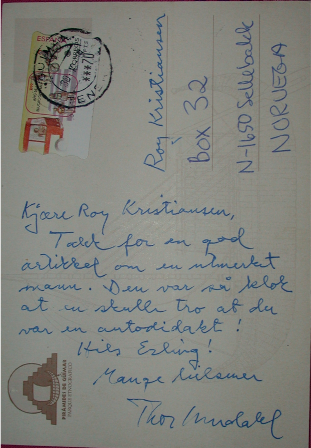 Kjære Roy Kristiansen,
Takk for en god
artikkel om en utmerket
mann. Den var så klok
at en skulle tro at du
var en autodidakt!
Hils Erling!
Mange hilsener
Thor
Roy Kristiansen
BOX 32
N-1650 Sellebakk
NORUEGA
ESPAÑA
PIRAMIDES DE GÜIMAR